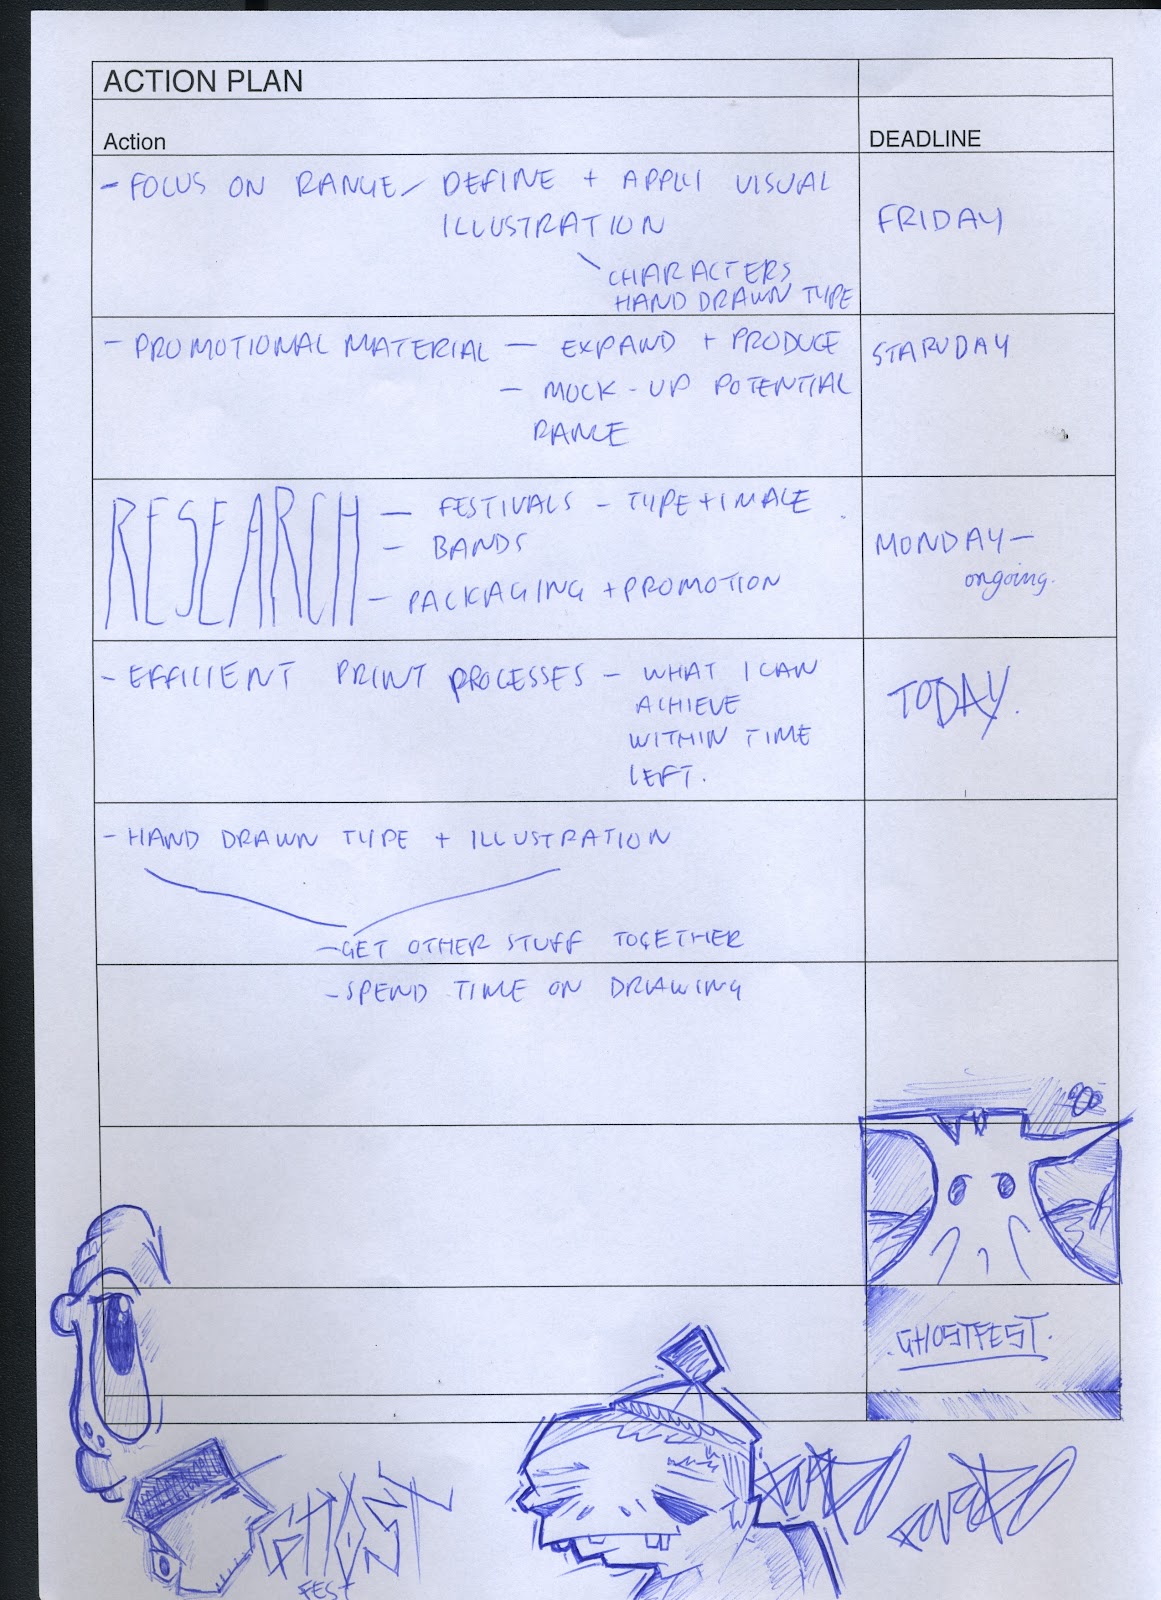 ACTION PLAN
Action DEADLINE
- FOCUS ON RANGE - DEFINE + APPLY VISUAL
ILLUSTRATION
FRIDAY
CHARACTERS
HAND DRAWN TYPE
- PROMOTIONAL MATERIAL — EXPAND + PRODUCE
STARUDAY
— MOCK-UP POTENTIAL
RANGE
RESEARCH
— FESTIVALS - TYPE + IMAGE
- BANDS
MONDAY —
ongoing.
- PACKAGING + PROMOTION
- EFFICIENT PRINT PROCESSES - WHAT I CAN
ACHIEVE
WITHIN TIME
LEFT.
TODAY.
- HAND DRAWN TYPE + ILLUSTRATION
- GET OTHER STUFF TOGETHER
- SPEND TIME ON DRAWING
GHOSTFEST.
GHOST
FEST